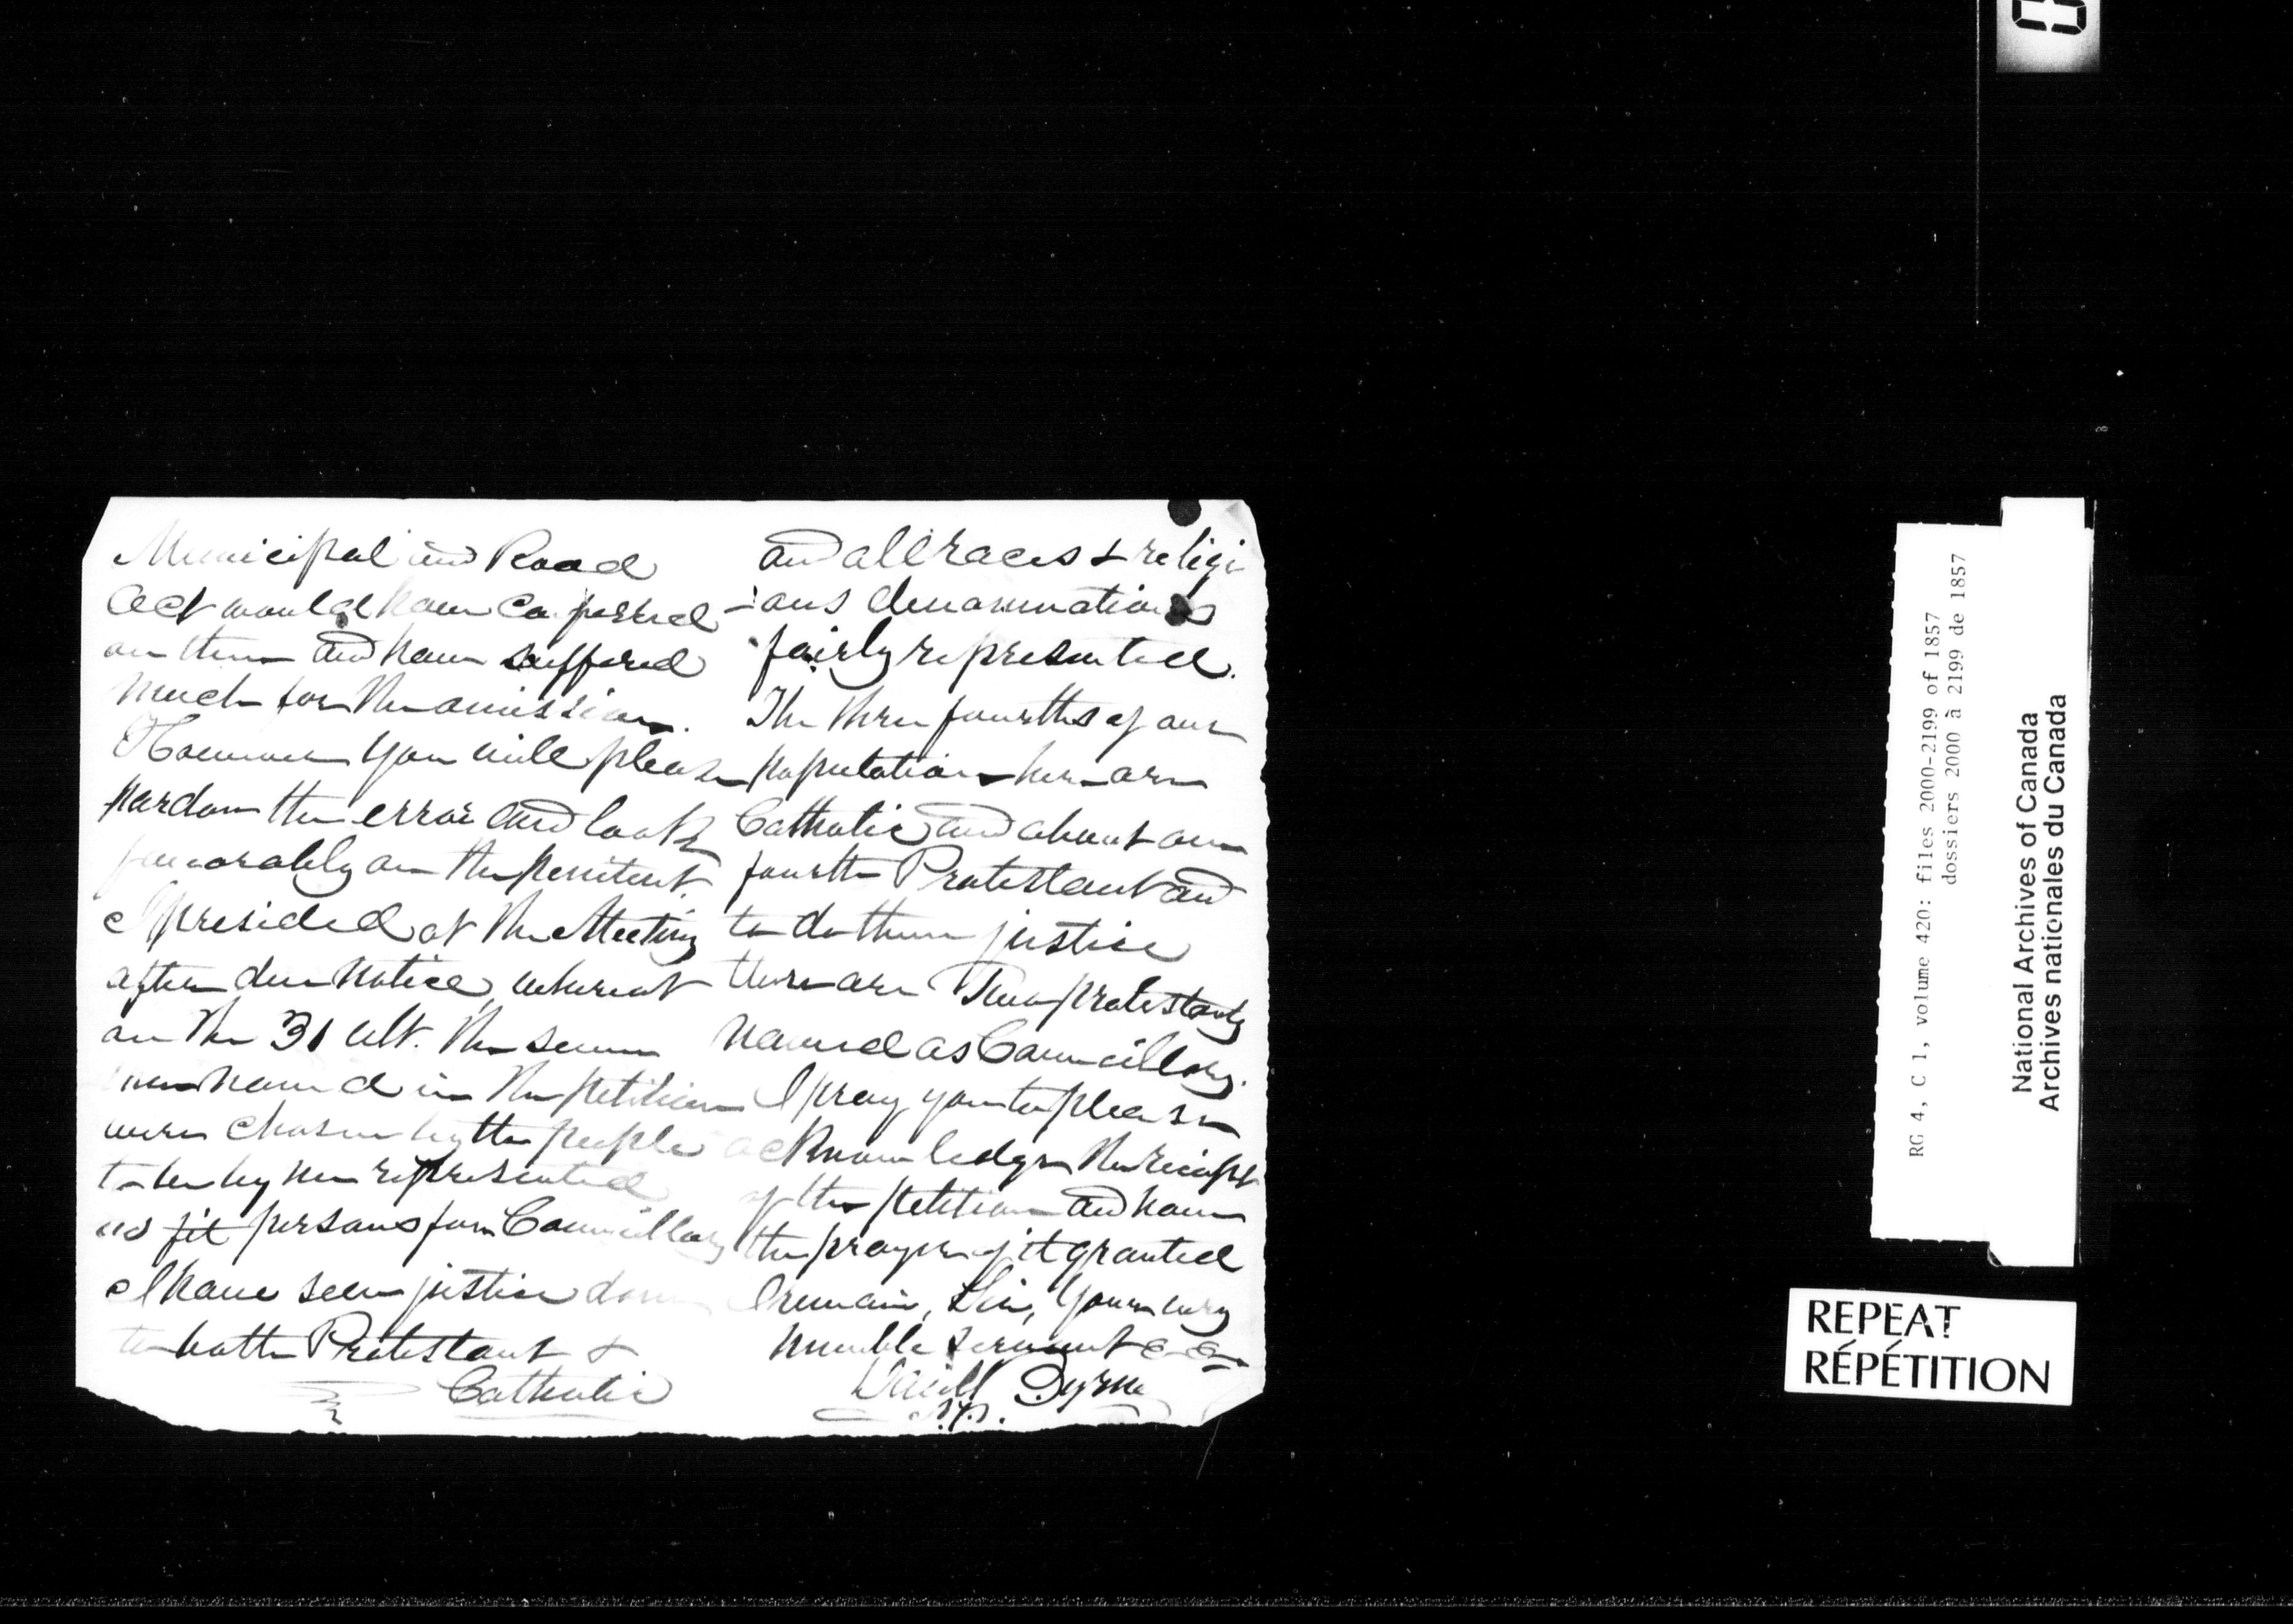 Municipal and Road
Act would have conferred
on them and have suffered
much for the omission.
However you will please
pardon the error and look
favorably on the penitent.
I presided at the Meeting
after due notice, whereat
on the 31 ult. the seven
men named in the petition
were chosen by the people
to be by me represented
as fit persons for Councillors
I have seen justice done
to both Protestant &
Catholic
and all races & religi
-ous denominations
fairly represented.
The three fourths of our
population here are
Catholic and about one
fourth Protestant and
to do them justice
there are Two protestants
named as Councillors.
I pray you to please
acknowledge the receipt
of the petition and have
the prayer of it granted
I remain, Sir, Your very
humble servant &c &c
Byrne
J.P.
RG 4, C 1, volume 420: files 2000-2199 of 1857
dossiers 2000 à 2199 de 1857
National Archives of Canada
Archives nationales du Canada
REPEAT
RÉPÉTITION
8